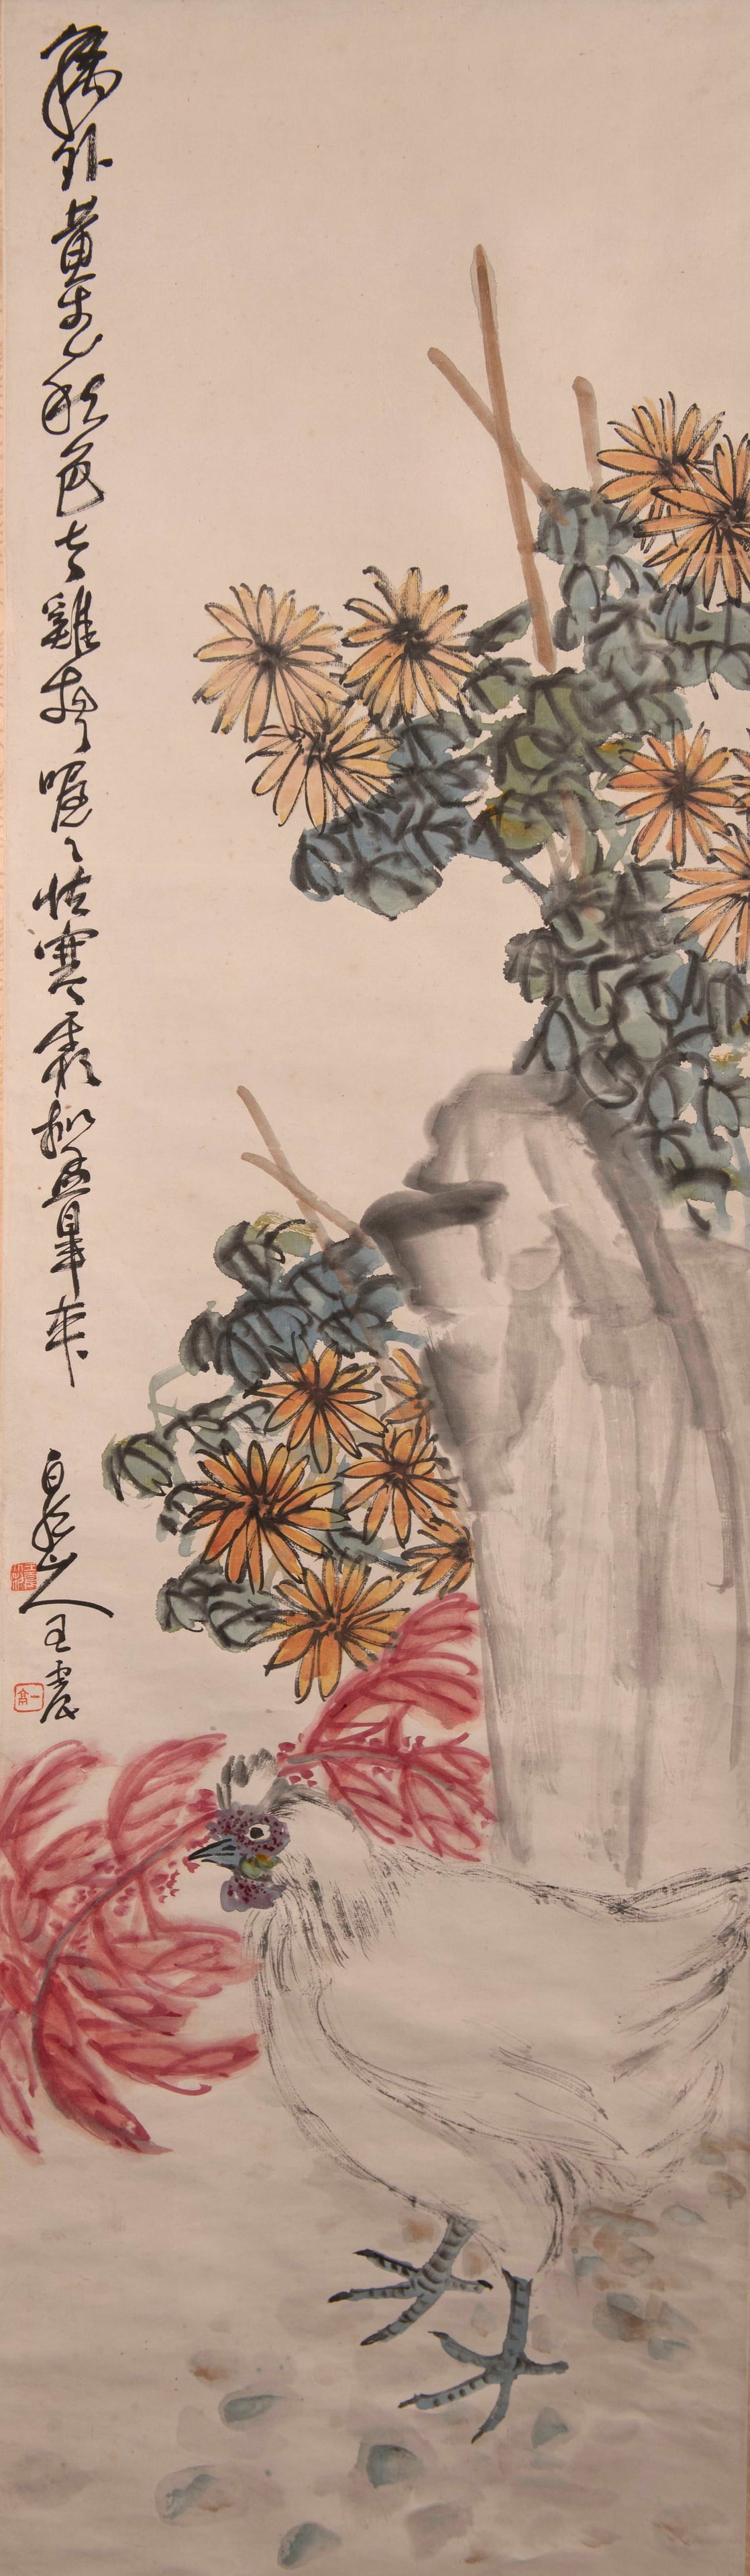 籬外黃花秋色老雞聲喔喔怯寒霜擬孟皋
白龍山人王震
一亭